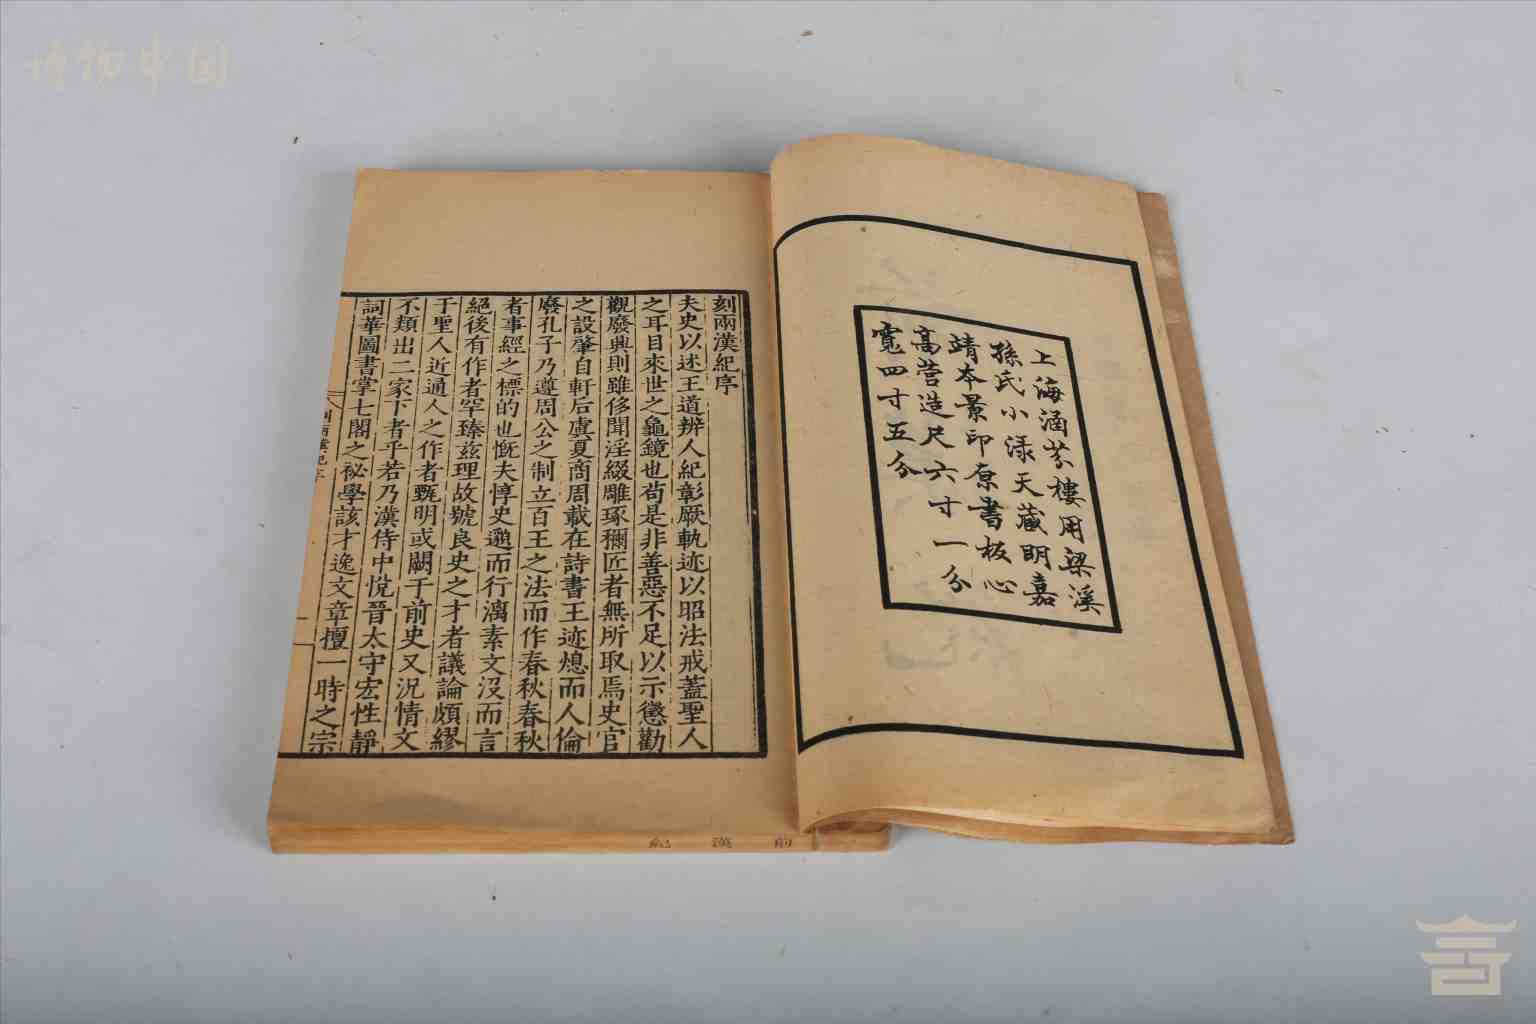 博物中国
上海涵芬樓用梁溪
孫氏小淥天藏明嘉
靖本景印原書板心
高營造尺六寸一分
寬四寸五分
刻兩漢紀序
夫史以述王道辨人紀彰厥軌迹以昭法戒蓋聖人
之耳目來世之龜鏡也苟是非善惡不足以示懲勸
觀廢興則雖侈聞淫綴雕琢禰匠者無所取焉史官
之設肇自軒后虞夏商周載在詩書王迹熄而人倫
廢孔子乃遵周公之制立百王之法而作春秋春秋
者事經之標的也慨夫惇史邈而行漓素文沒而言
絕後有作者罕臻茲理故號良史之才者議論頗繆
于聖人近通人之作者甄明或闕于前史又況情文
不類出二家下者乎若乃漢侍中悅晉太守宏性靜
詞華圖書掌七閣之祕學該才逸文章擅一時之宗
前漢紀